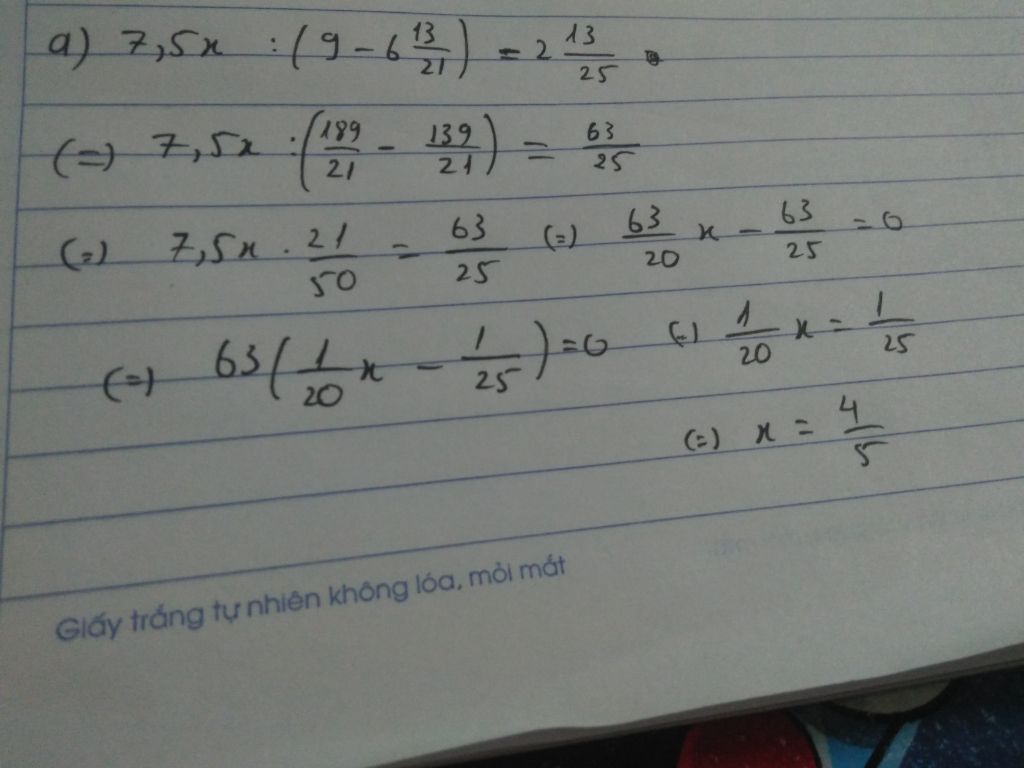 a) 7,5x : (9 - 6 13/21) = 2 13/25
(=) 7,5x : (189/21 - 139/21) = 63/25
(=) 7,5x . 21/50 = 63/25 (=) 63/20 x - 63/25 = 0
(=) 63(1/20 x - 1/25) = 0 (=) 1/20 x = 1/25
(=) x = 4/5
Giấy trắng tự nhiên không lóa, mỏi mắt